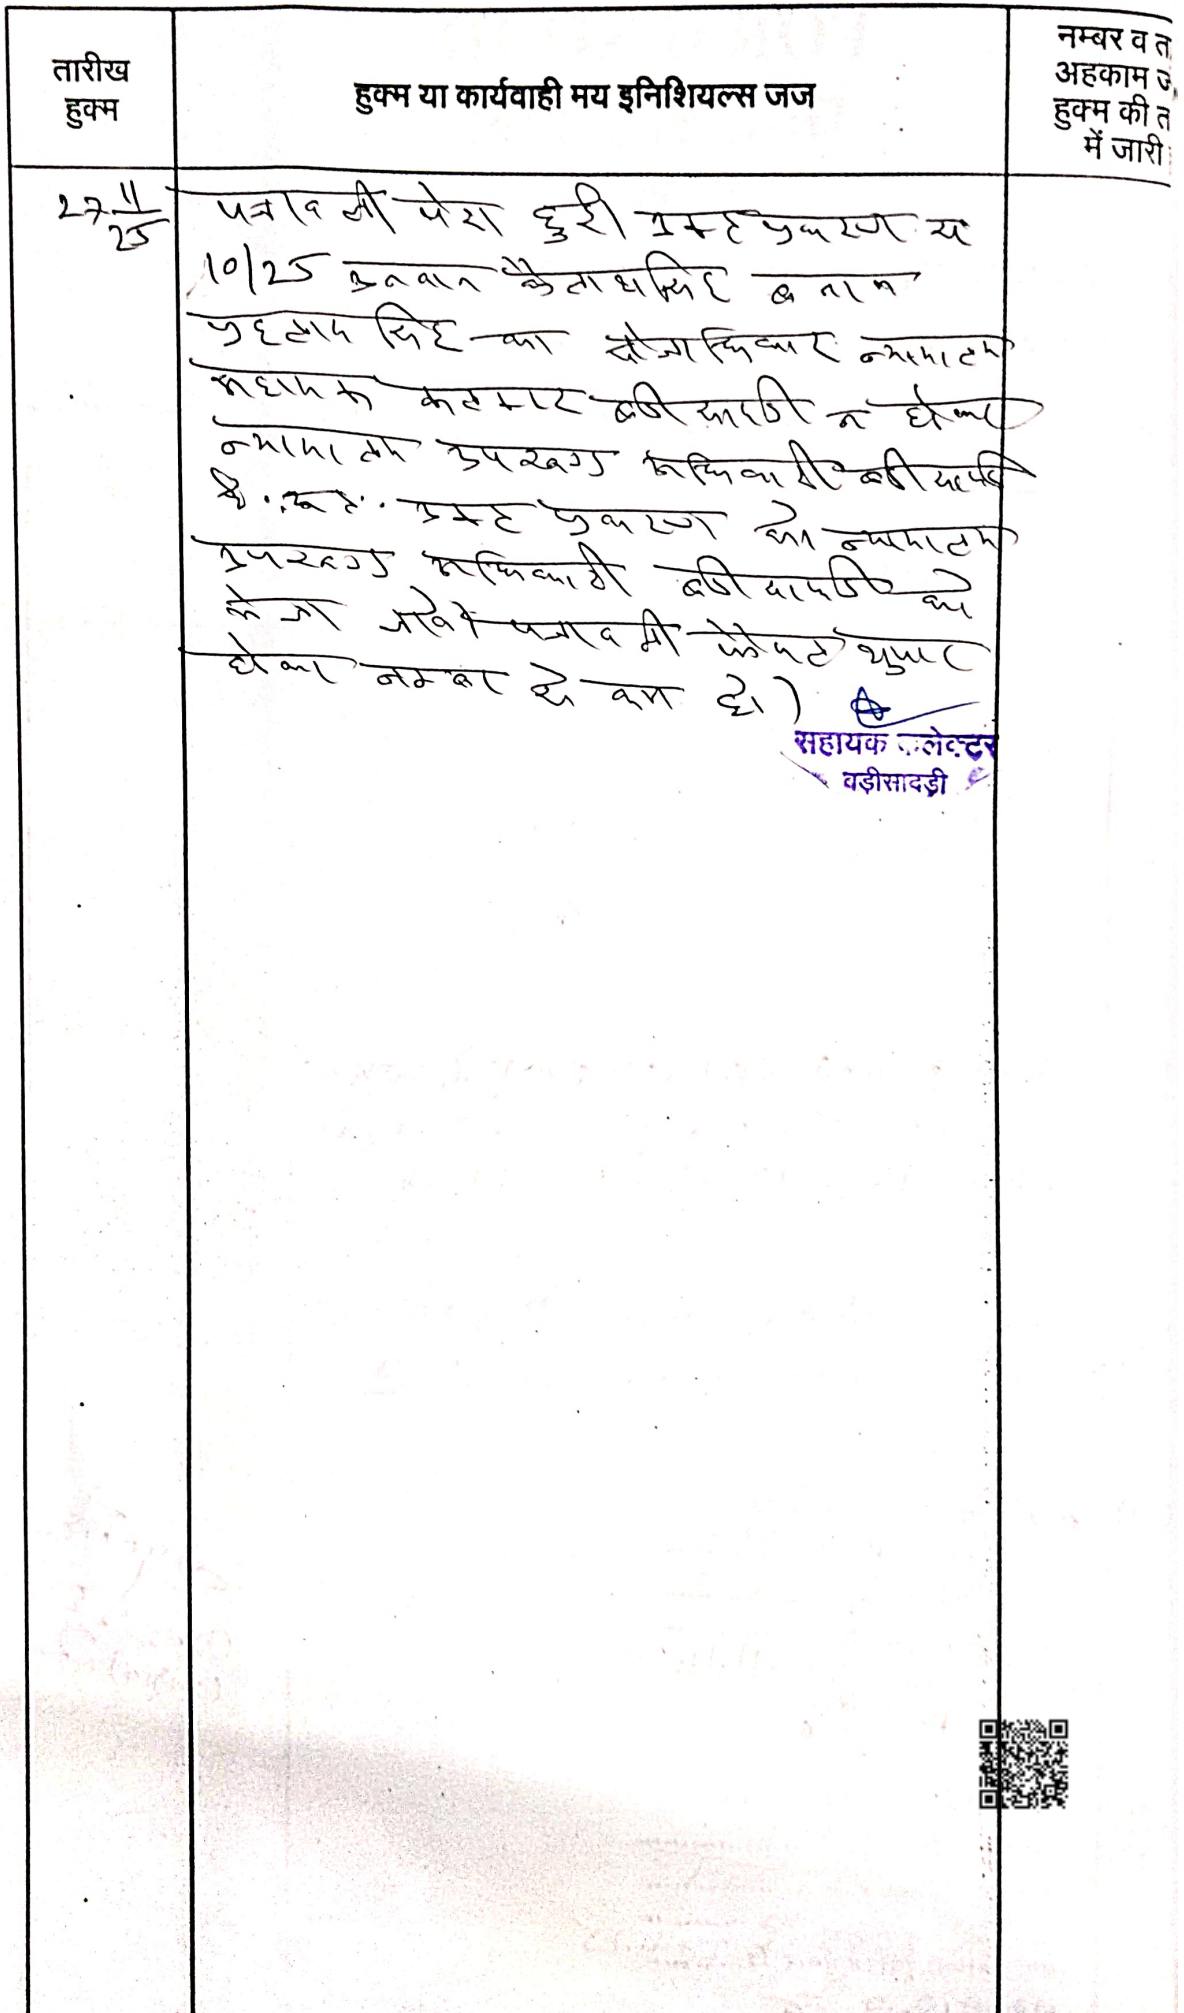 तारीख
हुक्म
हुक्म या कार्यवाही मय इनिशियल्स जज
नम्बर व त
अहकाम ज
हुक्म की त
में जारी
27 11/25
पत्रावली पेश हुई। प्रकरण सं
10/25 उनवान कैलाशसिंह बनाम
प्रहलाद सिंह का क्षेत्राधिकार न्यायालय
सहायक कलक्टर बडीसादडी न होकर
न्यायालय उपखण्ड अधिकारी बडीसादडी
है। अतः प्रकरण को न्यायालय
उपखण्ड अधिकारी बडीसादडी को
भेजा जावे। पत्रावली फैसल शुमार
होकर नम्बर से कम हो।
सहायक कलेक्टर
बड़ीसादड़ी